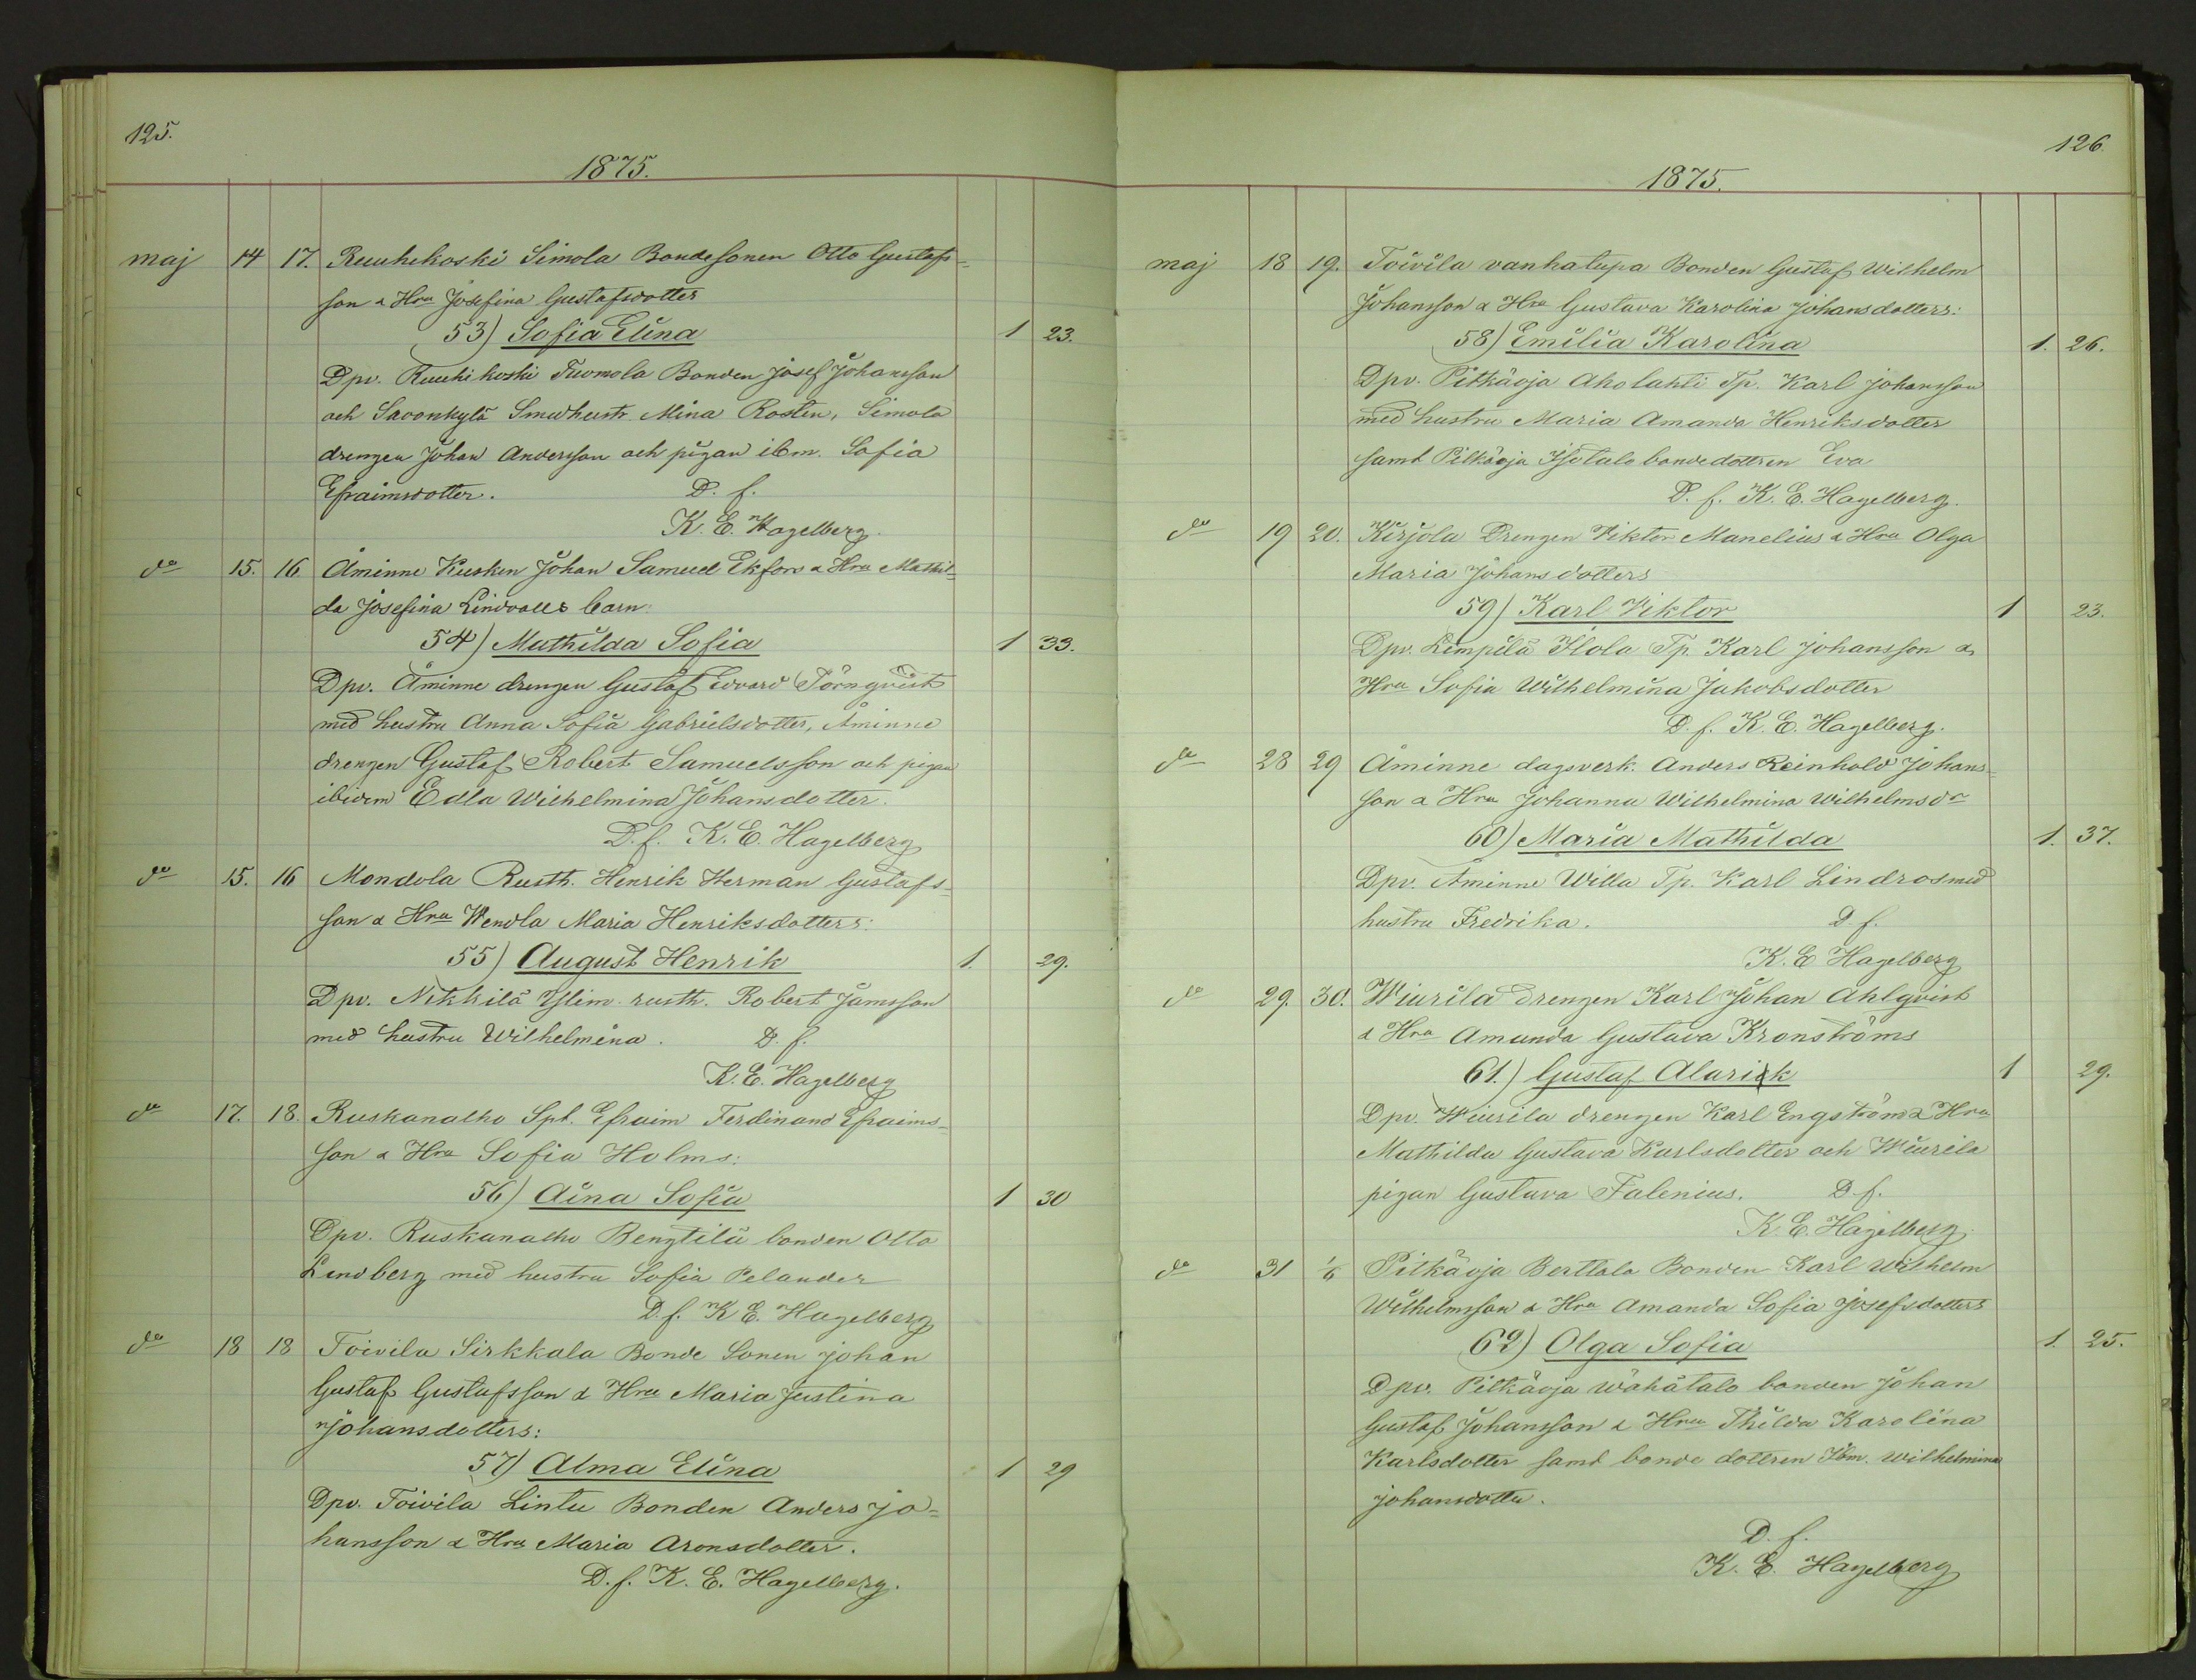 125.
1875.
maj 14 17. Ruuhikoski Simola Bondesonen Otto Gustafs-
son & Hru Josefina Gustafsdotter
53) Sofia Elina 1 23.
Dpv. Ruuhikoski Tuomola Bonden Josef Johansson
och Savonkylä Smedhustr. Mina Rosten, Simola
drengen Johan Andersson och pigan ibm. Sofia
Efraimsdotter. D. f.
K. E. Hagelberg.
do 15. 16 Åminne Kusken Johan Samuel Ekfors & Hru Mathil-
da Josefina Lindvalls barn:
54) Mathilda Sofia 1 33.
Dpv. Åminne drengen Gustaf Edvard Törnqvist
med hustru Anna Sofia Gabrielsdotter, Åminne
drengen Gustaf Robert Samuelsson och pigan
ibidem Edla Wilhelmina Johansdotter.
D. f. K. E. Hagelberg
do 15. 16 Mondola Rusth. Henrik Herman Gustafs-
son & Hru Wendla Maria Henriksdotters:
55) August Henrik 1. 29.
Dpv. Nikkilä rusth. Robert Jamsson
med hustru Wilhelmina. D. f.
K. E. Hagelberg
do 17. 18. Ruskanalho Spl. Efraim Ferdinand Efraims-
son & Hru Sofia Holms:
56) Aina Sofia 1 30
Dpv. Ruskanalho Bengtilä bonden Otto
Lindberg med hustru Sofia Pelander
D. f. K. E. Hagelberg
do 18 18 Toivila Sirkkala Bonde Sonen Johan
Gustaf Gustafsson & Hru Maria Justina
Johansdotters:
57) Alma Elina 1 29
Dpv. Toivila Lintu Bonden Anders Jo-
hansson & Hru Maria Aronsdotter.
D. f. K. E. Hagelberg.
126.
1875.
maj 18 19. Toivila vanhatupa Bonden Gustaf Wilhelm
Johansson & Hru Gustava Karolina Johansdotters:
58) Emilia Karolina 1. 26.
Dpv. Pitkäoja Aholahti Tp. Karl Johansson
med hustru Maria Amanda Henriksdotter
samt Pitkäoja Isotalo bondedottren Eva
D. f. K. E. Hagelberg.
do 19 20. Kirjola Drengen Viktor Manelius & Hru Olga
Maria Johansdotters
59) Karl Viktor 1 23.
Dpv. Limpilä Ilola Tp. Karl Johansson &
Hru Sofia Wilhelmina Jakobsdotter
D. f. K. E. Hagelberg.
do 28 29 Åminne dagsverk. Anders Reinhold Johans-
son & Hru Johanna Wilhelmina Wilhelmsdr
60) Maria Mathilda 1. 37.
Dpv. Åminne Willa Tp. Karl Lindros med
hustru Fredrika. D f.
K. E Hagelberg
do 29. 30. Wiurila drengen Karl Johan Ahlqvist
& Hru Amanda Gustava Kronströms
61.) Gustaf Alarik 1 29.
Dpv. Wiurila drengen Karl Engström & Hru
Mathilda Gustava Karlsdotter och Wiurila
pigan Gustava Falenius. D. f.
K. E. Hagelberg.
do 31 1/6 Pitkäoja Berttala Bonden Karl Wilhelm
Wilhelmsson & Hru Amanda Sofia Josefsdotters
62) Olga Sofia 1. 25.
Dpv. Pitkäoja Wähätalo bonden Johan
Gustaf Johansson & Hru Thilda Karolina
Karlsdotter samt bonde dottren Ibm. Wilhelmina
Johansdotter.
D. f.
K. E. Hagelberg